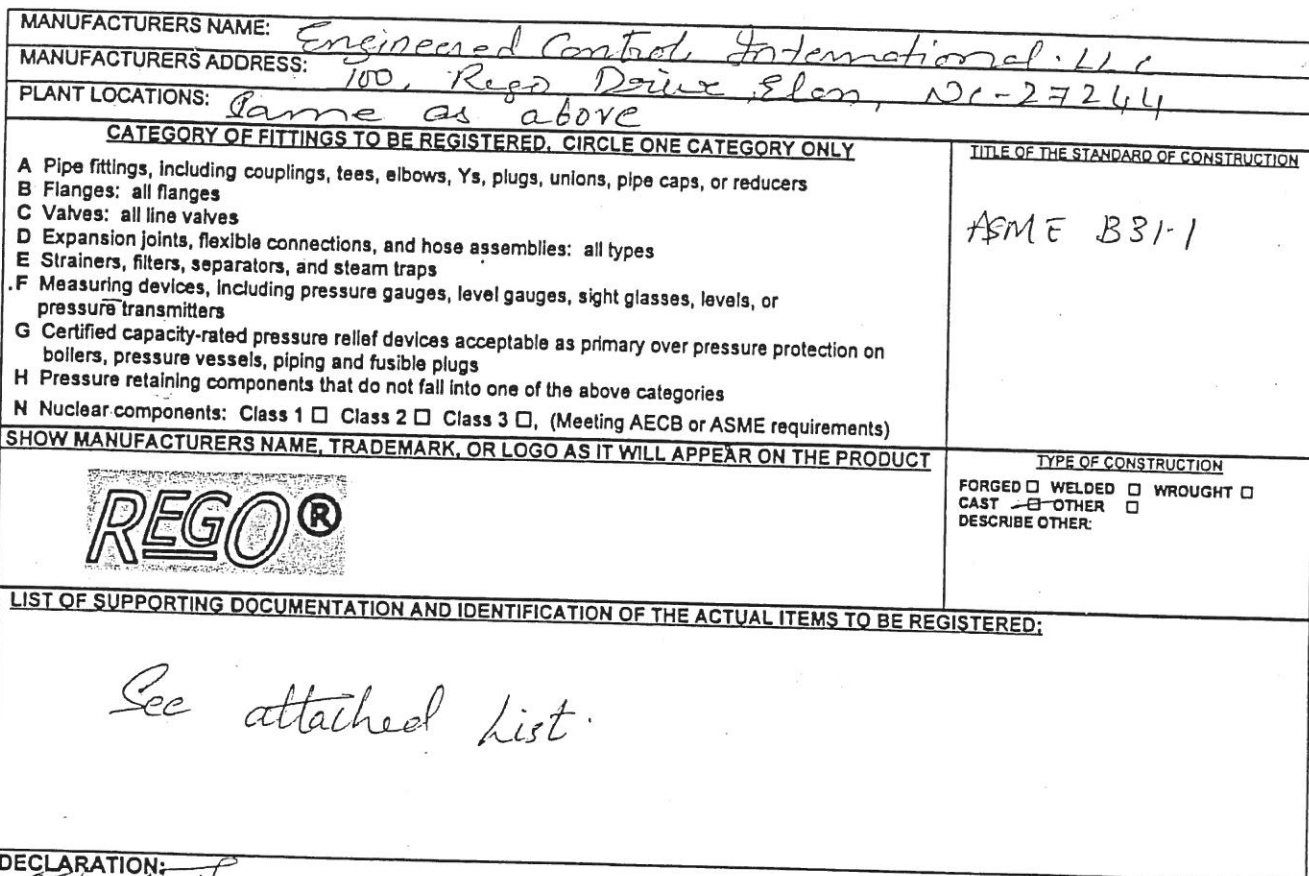 MANUFACTURERS NAME: Engineered Controls International. LLC
MANUFACTURERS ADDRESS: 100, Rego Drive Elon, NC-27244
PLANT LOCATIONS: Same as above
CATEGORY OF FITTINGS TO BE REGISTERED, CIRCLE ONE CATEGORY ONLY
A Pipe fittings, including couplings, tees, elbows, Ys, plugs, unions, pipe caps, or reducers
B Flanges: all flanges
C Valves: all line valves
D Expansion joints, flexible connections, and hose assemblies: all types
E Strainers, filters, separators, and steam traps
F Measuring devices, including pressure gauges, level gauges, sight glasses, levels, or
pressure transmitters
G Certified capacity-rated pressure relief devices acceptable as primary over pressure protection on
boilers, pressure vessels, piping and fusible plugs
H Pressure retaining components that do not fall into one of the above categories
N Nuclear components: Class 1 ☐ Class 2 ☐ Class 3 ☐, (Meeting AECB or ASME requirements)
TITLE OF THE STANDARD OF CONSTRUCTION
ASME B31.1
SHOW MANUFACTURERS NAME, TRADEMARK, OR LOGO AS IT WILL APPEAR ON THE PRODUCT
REGO®
TYPE OF CONSTRUCTION
FORGED ☐ WELDED ☐ WROUGHT ☐
CAST ☐ OTHER ☐
DESCRIBE OTHER:
LIST OF SUPPORTING DOCUMENTATION AND IDENTIFICATION OF THE ACTUAL ITEMS TO BE REGISTERED:
See attached List.
DECLARATION: